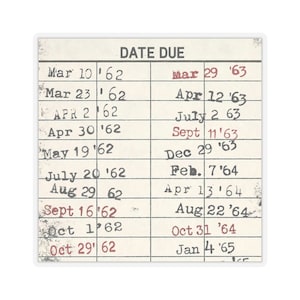 DATE DUE
Mar 10 '62
Mar 23 '62
APR 2 '62
Apr 30 '62
May 19 '62
July 20 '62
Aug 29 62
Sept 16 '62
Oct 1 '62
Oct 29' 62
Mar 29 '63
Apr 12 '63
July 2 63
Sept 11 '63
Dec 29 '63
Feb. 7 '64
Apr 13 '64
Aug 22 '64
Oct 31 '64
Jan 4 '65